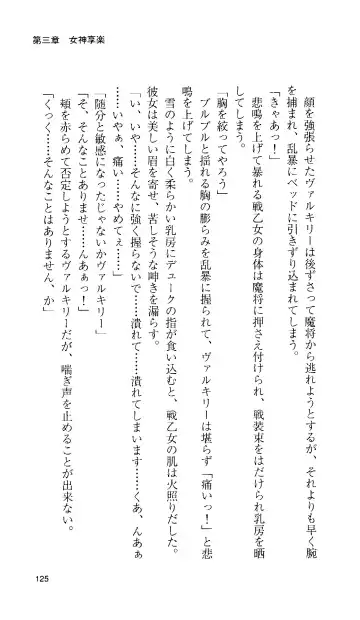 第三章　女神享楽
　顔を強張らせたヴァルキリーは後ずさって魔将から逃れようとするが、それよりも早く腕
を捕まれ、乱暴にベッドに引きずり込まれてしまう。
「きゃあっ！」
　悲鳴を上げて暴れる戦乙女の身体は魔将に押さえ付けられ、戦装束をはだけられ乳房を晒
してしまう。
「胸を絞ってやろう」
　ブルブルと揺れる胸の膨らみを乱暴に握られて、ヴァルキリーは堪らず「痛いっ！」と悲
鳴を上げてしまう。
　雪のように白く柔らかい乳房にデュークの指が食い込むと、戦乙女の肌は火照りだした。
彼女は美しい眉を寄せ、苦しそうな呻きを漏らす。
「い、いや……そんなに強く握らないで……潰れて……潰れてしまいます……くあ、んあぁ
……いやぁ、痛い……やめてぇ……」
「随分と敏感になったじゃないかヴァルキリー」
「そ、そんなことありませ……んあぁっ！」
　頬を赤らめて否定しようとするヴァルキリーだが、喘ぎ声を止めることが出来ない。
「くっく……そんなことはありません、か」
125